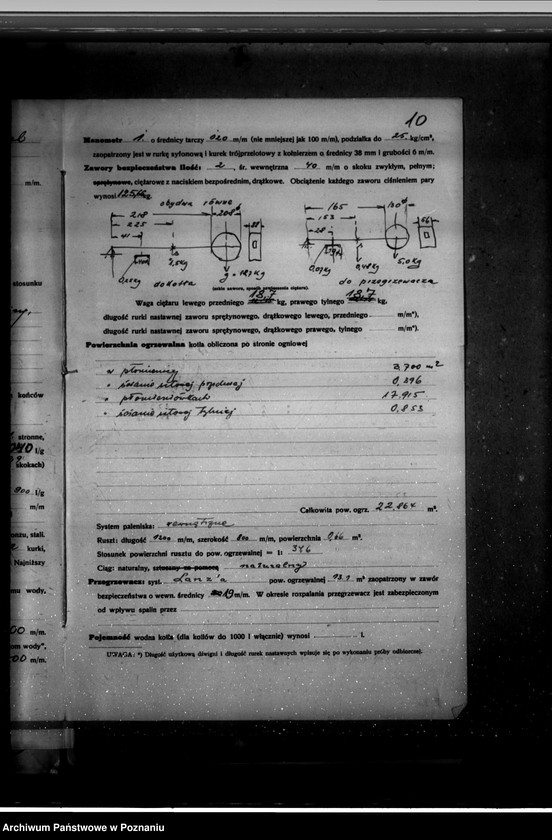 10
Manometr 1. o średnicy tarczy 120 m/m (nie mniejszej jak 100 m/m), podziałka do 25 kg/cm²,
zaopatrzony jest w rurkę syfonową i kurek trójprzelotowy z kołnierzem o średnicy 38 mm i grubości 6 m/m.
Zawory bezpieczeństwa ilość: 2, śr. wewnętrzna 40 m/m o skoku zwykłym, pełnym;
sprężynowe, ciężarowe z naciskiem bezpośrednim, drążkowe. Obciążenie każdego zaworu ciśnieniem pary
wynosi kg.
obydwa równe
218 208
225
41
88
165 130
153
28
66
do kotła
g = 18,7 kg
5.0 kg
do przegrzewacza
Waga ciężaru lewego przedniego 18,7 kg, prawego tylnego 18,7 kg,
długość rurki nastawnej zaworu sprężynowego, drążkowego lewego, przedniego m/m*),
długość rurki nastawnej zaworu sprężynowego, drążkowego prawego, tylnego m/m*).
Powierzchnia ogrzewalna kotła obliczona po stronie ogniowej
w płomienicy 3.700 m²
" ścianie sitowej przedniej 0.396
" płomieniówkach 17.915
" ścianie sitowej tylniej 0.853
Całkowita pow. ogrz. 22.864 m².
System paleniska: wewnętrzne
Ruszt: długość m/m, szerokość 800 m/m, powierzchnia 0,66 m².
Stosunek powierzchni rusztu do pow. ogrzewalnej = 1: 34,6
Ciąg: naturalny, sztuczny za pomocą naturalny
Przegrzewacz: syst. Lanz'a pow. ogrzewalnej m² zaopatrzony w zawór
bezpieczeństwa o wewn. średnicy 19 m/m. W okresie rozpalania przegrzewacz jest zabezpieczonym
od wpływu spalin przez
Pojemność wodna kotła (dla kotłów do 1000 l włącznie) wynosi l.
UWAGA: *) Długość użytkową dźwigni i długość rurek nastawnych wpisuje się po wykonaniu próby odbiorczej.
m/m.
stosunku
końców
stronne,
l/g
skokach)
900 l/g
m/m
onzu, stali.
kurki,
Najniższy
mu wody,
00 m/m.
om wody",
00 m/m.
Archiwum Państwowe w Poznaniu